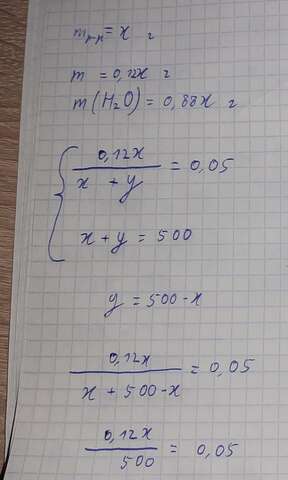 m р-р = x г
m = 0,12x г
m (H₂O) = 0,88x г
0,12x / x + y = 0,05
x + y = 500
y = 500 - x
0,12x / x + 500 - x = 0,05
0,12x / 500 = 0,05